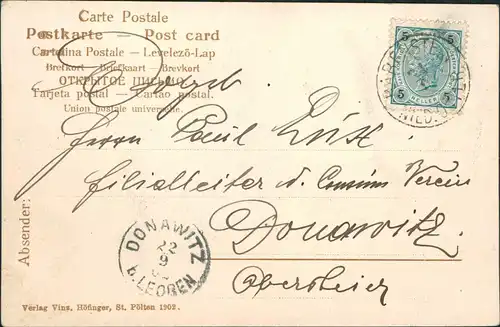 Carte Postale
Postkarte — Post card
Cartolina Postale — Levelező-Lap
Brefkort — Briefkaart — Brevkort
ОТКРЫТОЕ ПИСЬМО
Tarjeta postal — Cartão postal.
Union postale universelle.
5 5
5 HELLER 5
NIED.
Herrn Paul
Filialleiter d. Consum Verein
Donawitz
Obersteier
Absender:
DONAWITZ
22
9
b. LEOBEN
Verlag Vinz. Höfinger, St. Pölten 1902.